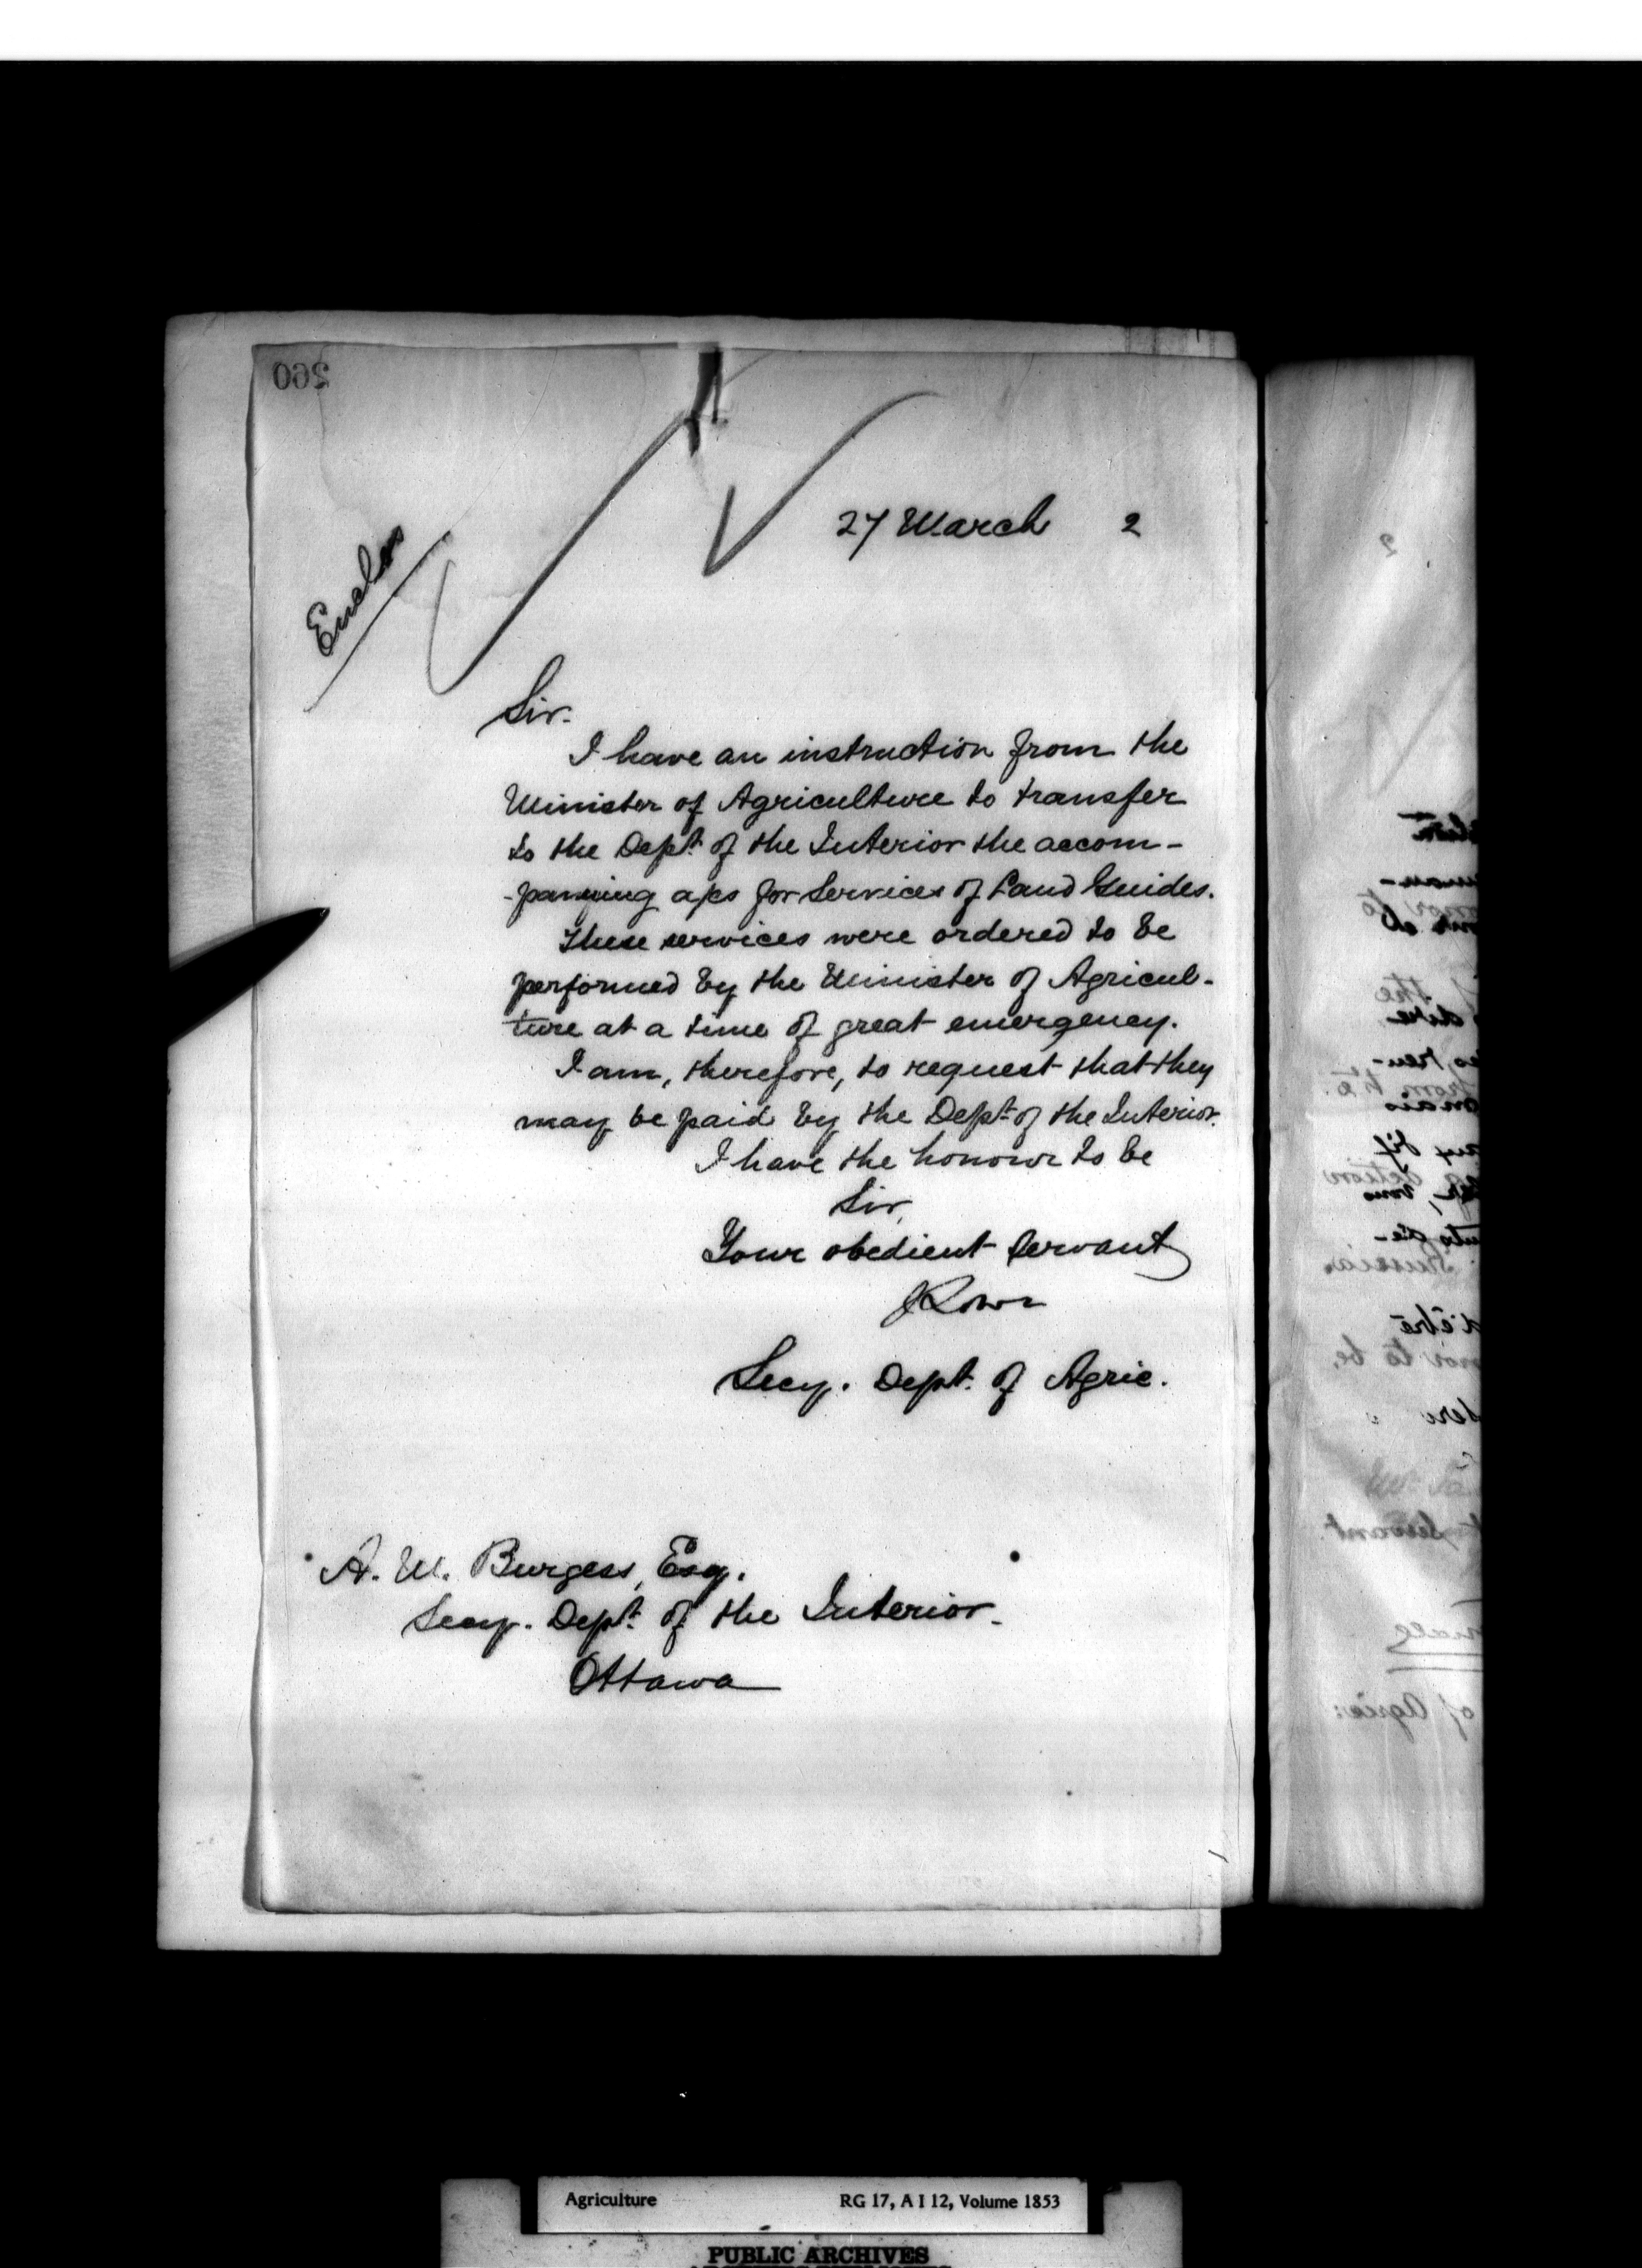 260
27 March 2
Enclos
Sir.
I have an instruction from the
Minister of Agriculture to transfer
to the Dept. of the Interior the accom-
-panying a/cs for Services of Land Guides.
These services were ordered to be
performed by the Minister of Agricul-
ture at a time of great emergency.
I am, therefore, to request that they
may be paid by the Dept. of the Interior.
I have the honour to be
Sir,
Your obedient Servant
J Lowe
Secy. Dept. of Agric.
A. M. Burgess, Esq.
Secy. Dept. of the Interior.
Ottawa
Agriculture RG 17, A I 12, Volume 1853
PUBLIC ARCHIVES